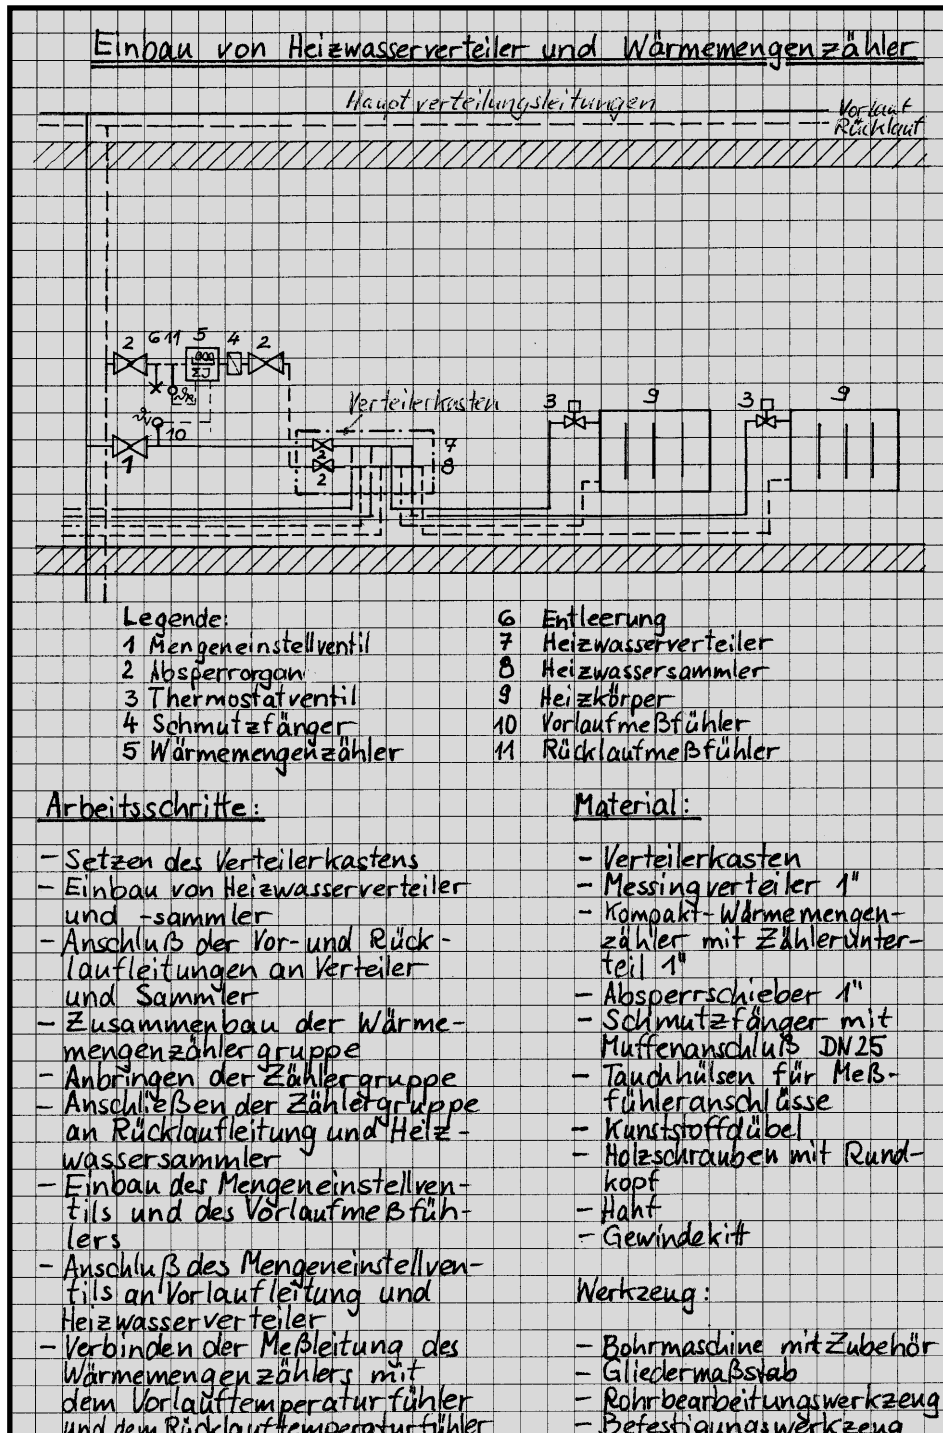 Einbau von Heizwasserverteiler und Wärmemengenzähler
Hauptverteilungsleitungen
Vorlauf
Rücklauf
2 6 11 5 4 2
ΣJ
ϑR
ϑV
10
1
Verteilerkasten
2
2
7
8
3
9
3
9
Legende:
1 Mengeneinstellventil
2 Absperrorgan
3 Thermostatventil
4 Schmutzfänger
5 Wärmemengenzähler
6 Entleerung
7 Heizwasserverteiler
8 Heizwassersammler
9 Heizkörper
10 Vorlaufmeßfühler
11 Rücklaufmeßfühler
Arbeitsschritte:
– Setzen des Verteilerkastens
– Einbau von Heizwasserverteiler
und -sammler
– Anschluß der Vor- und Rück-
laufleitungen an Verteiler
und Sammler
– Zusammenbau der Wärme-
mengenzählergruppe
– Anbringen der Zählergruppe
– Anschließen der Zählergruppe
an Rücklaufleitung und Heiz-
wassersammler
– Einbau des Mengeneinstellven-
tils und des Vorlaufmeßfüh-
lers
– Anschluß des Mengeneinstellven-
tils an Vorlaufleitung und
Heizwasserverteiler
– Verbinden der Meßleitung des
Wärmemengenzählers mit
dem Vorlauftemperaturfühler
und dem Rücklauftemperaturfühler
Material:
– Verteilerkasten
– Messingverteiler 1"
– Kompakt-Wärmemengen-
zähler mit Zählerunter-
teil 1"
– Absperrschieber 1"
– Schmutzfänger mit
Muffenanschluß DN25
– Tauchhülsen für Meß-
fühleranschlüsse
– Kunststoffdübel
– Holzschrauben mit Rund-
kopf
– Hanf
– Gewindekitt
Werkzeug:
– Bohrmaschine mit Zubehör
– Gliedermaßstab
– Rohrbearbeitungswerkzeug
– Befestigungswerkzeug